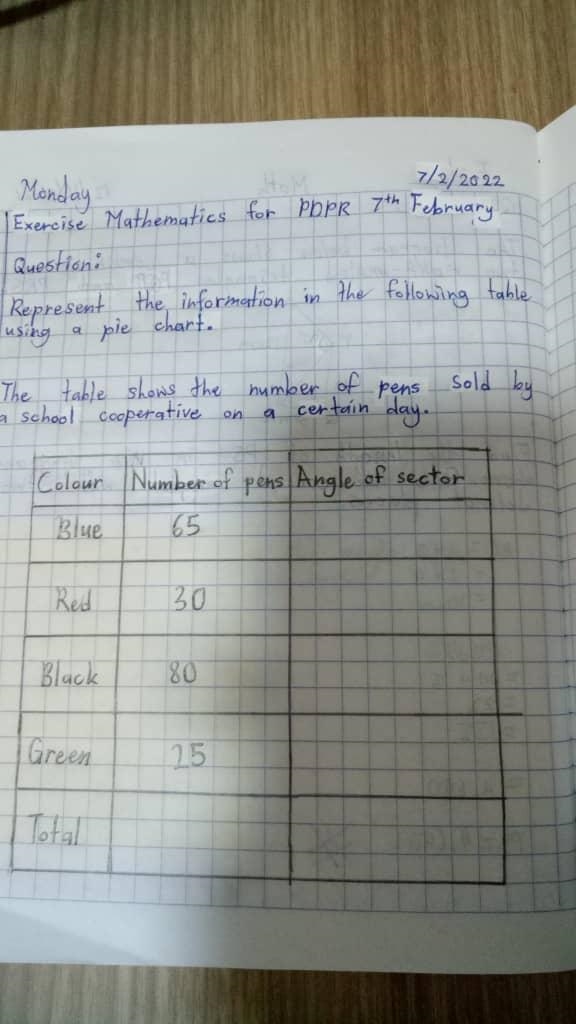 Monday
7/2/2022
Exercise Mathematics for PDPR 7th February
Question:
Represent the information in the following table
using a pie chart.
The table shows the number of pens sold by
a school cooperative on a certain day.
Colour Number of pens Angle of sector
Blue 65
Red 30
Black 80
Green 25
Total